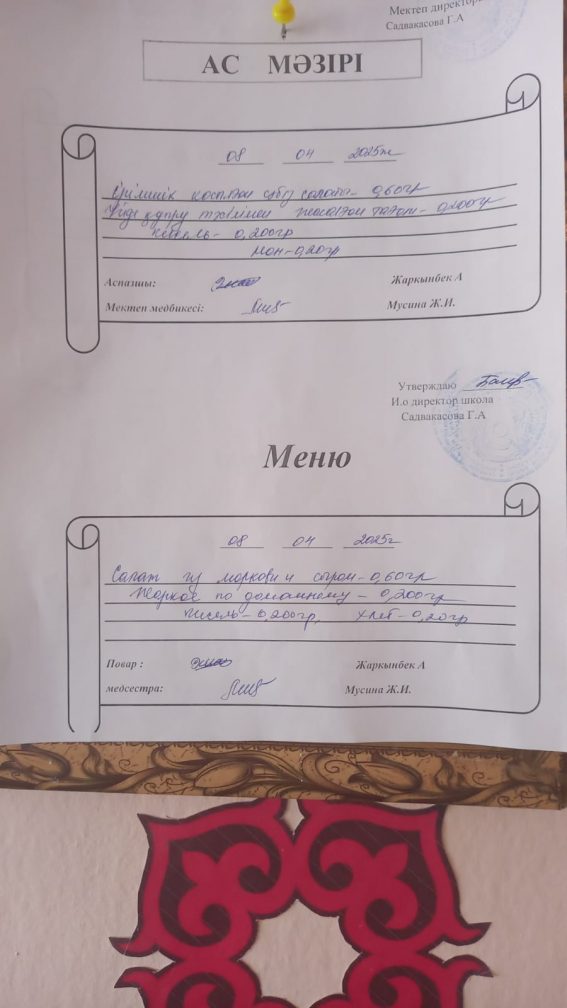 Мектеп директоры
Садвакасова Г.А
АС МӘЗІРІ
08 04 2025ж
Ірімшік қосылған сәбіз салаты - 0,60гр
Үйде қуыру тәсілімен жасалған тағам - 0,200гр
Кисель - 0,200гр
нон - 0,20гр
Аспазшы: Жаркынбек А
Мектеп медбикесі: Мусина Ж.И.
Утверждаю
И.о директор школа
Садвакасова Г.А
Меню
08 04 2025г
Салат из моркови и сыром - 0,60гр
Жаркое по домашнему - 0,200гр
кисель - 0,200гр, хлеб - 0,20гр
Повар : Жаркынбек А
медсестра: Мусина Ж.И.